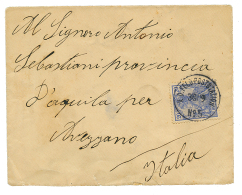 Al Signore Antonio
Sebastiani provincia
D'aquila per
Avezzano
Italia
No 5